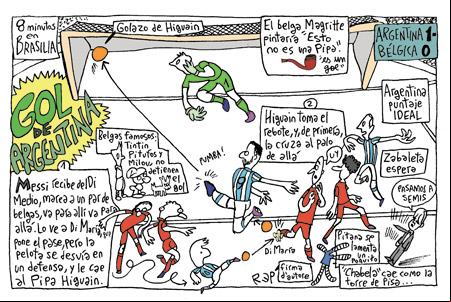 8 minutos
en
BRASILIA
Golazo de Higuain
El belga Magritte
pintaría "Esto
no es una Pipa".
"es un
gol"
ARGENTINA 1-
BÉLGICA 0
GOL
DE
ARGENTINA
Belgas famosos:
Tintin
Pitufos y
Milou no
detienen
el
gol
PUMBA!
2
Higuain toma el
rebote, y, de primera,
la cruza al palo
de allá
Argentina
puntaje
IDEAL
Zabaleta
espera
PASAMOS A
SEMIS
Messi recibe del Di
Medio, marea a un par de
belgas, va para allí va para
allá. Lo ve a Di María, le
pone el pase, pero la
pelota se desvía en
un defensa, y le cae
al Pipa Higuain.
Di María
RAP
firma
d'autore
Pitana se
lamenta un
poquito
"Chabela" cae como la
torre de Pisa...